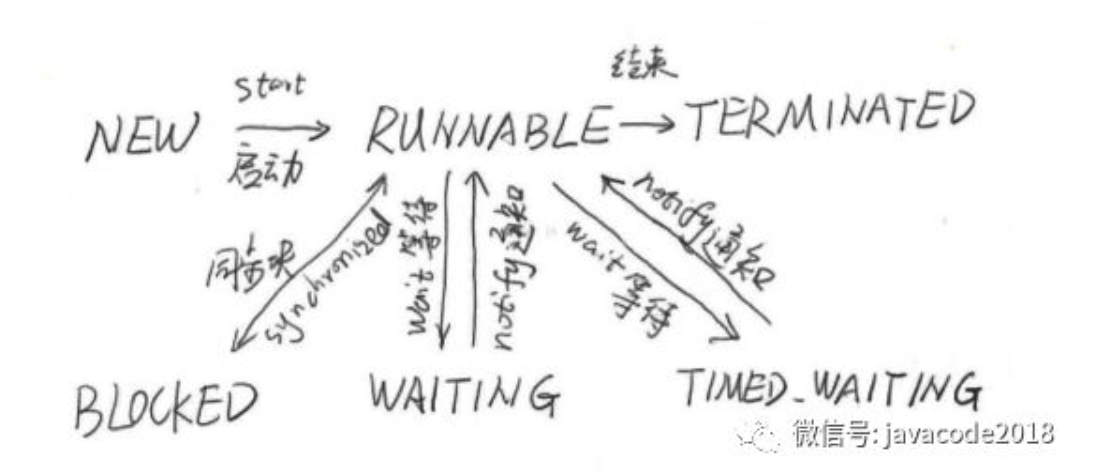 start
结束
NEW
RUNNABLE
TERMINATED
启动
同步块
synchronized
wait 等待
notify 通知
wait 等待
notify 通知
BLOCKED
WAITING
TIMED_WAITING
微信号: javacode2018